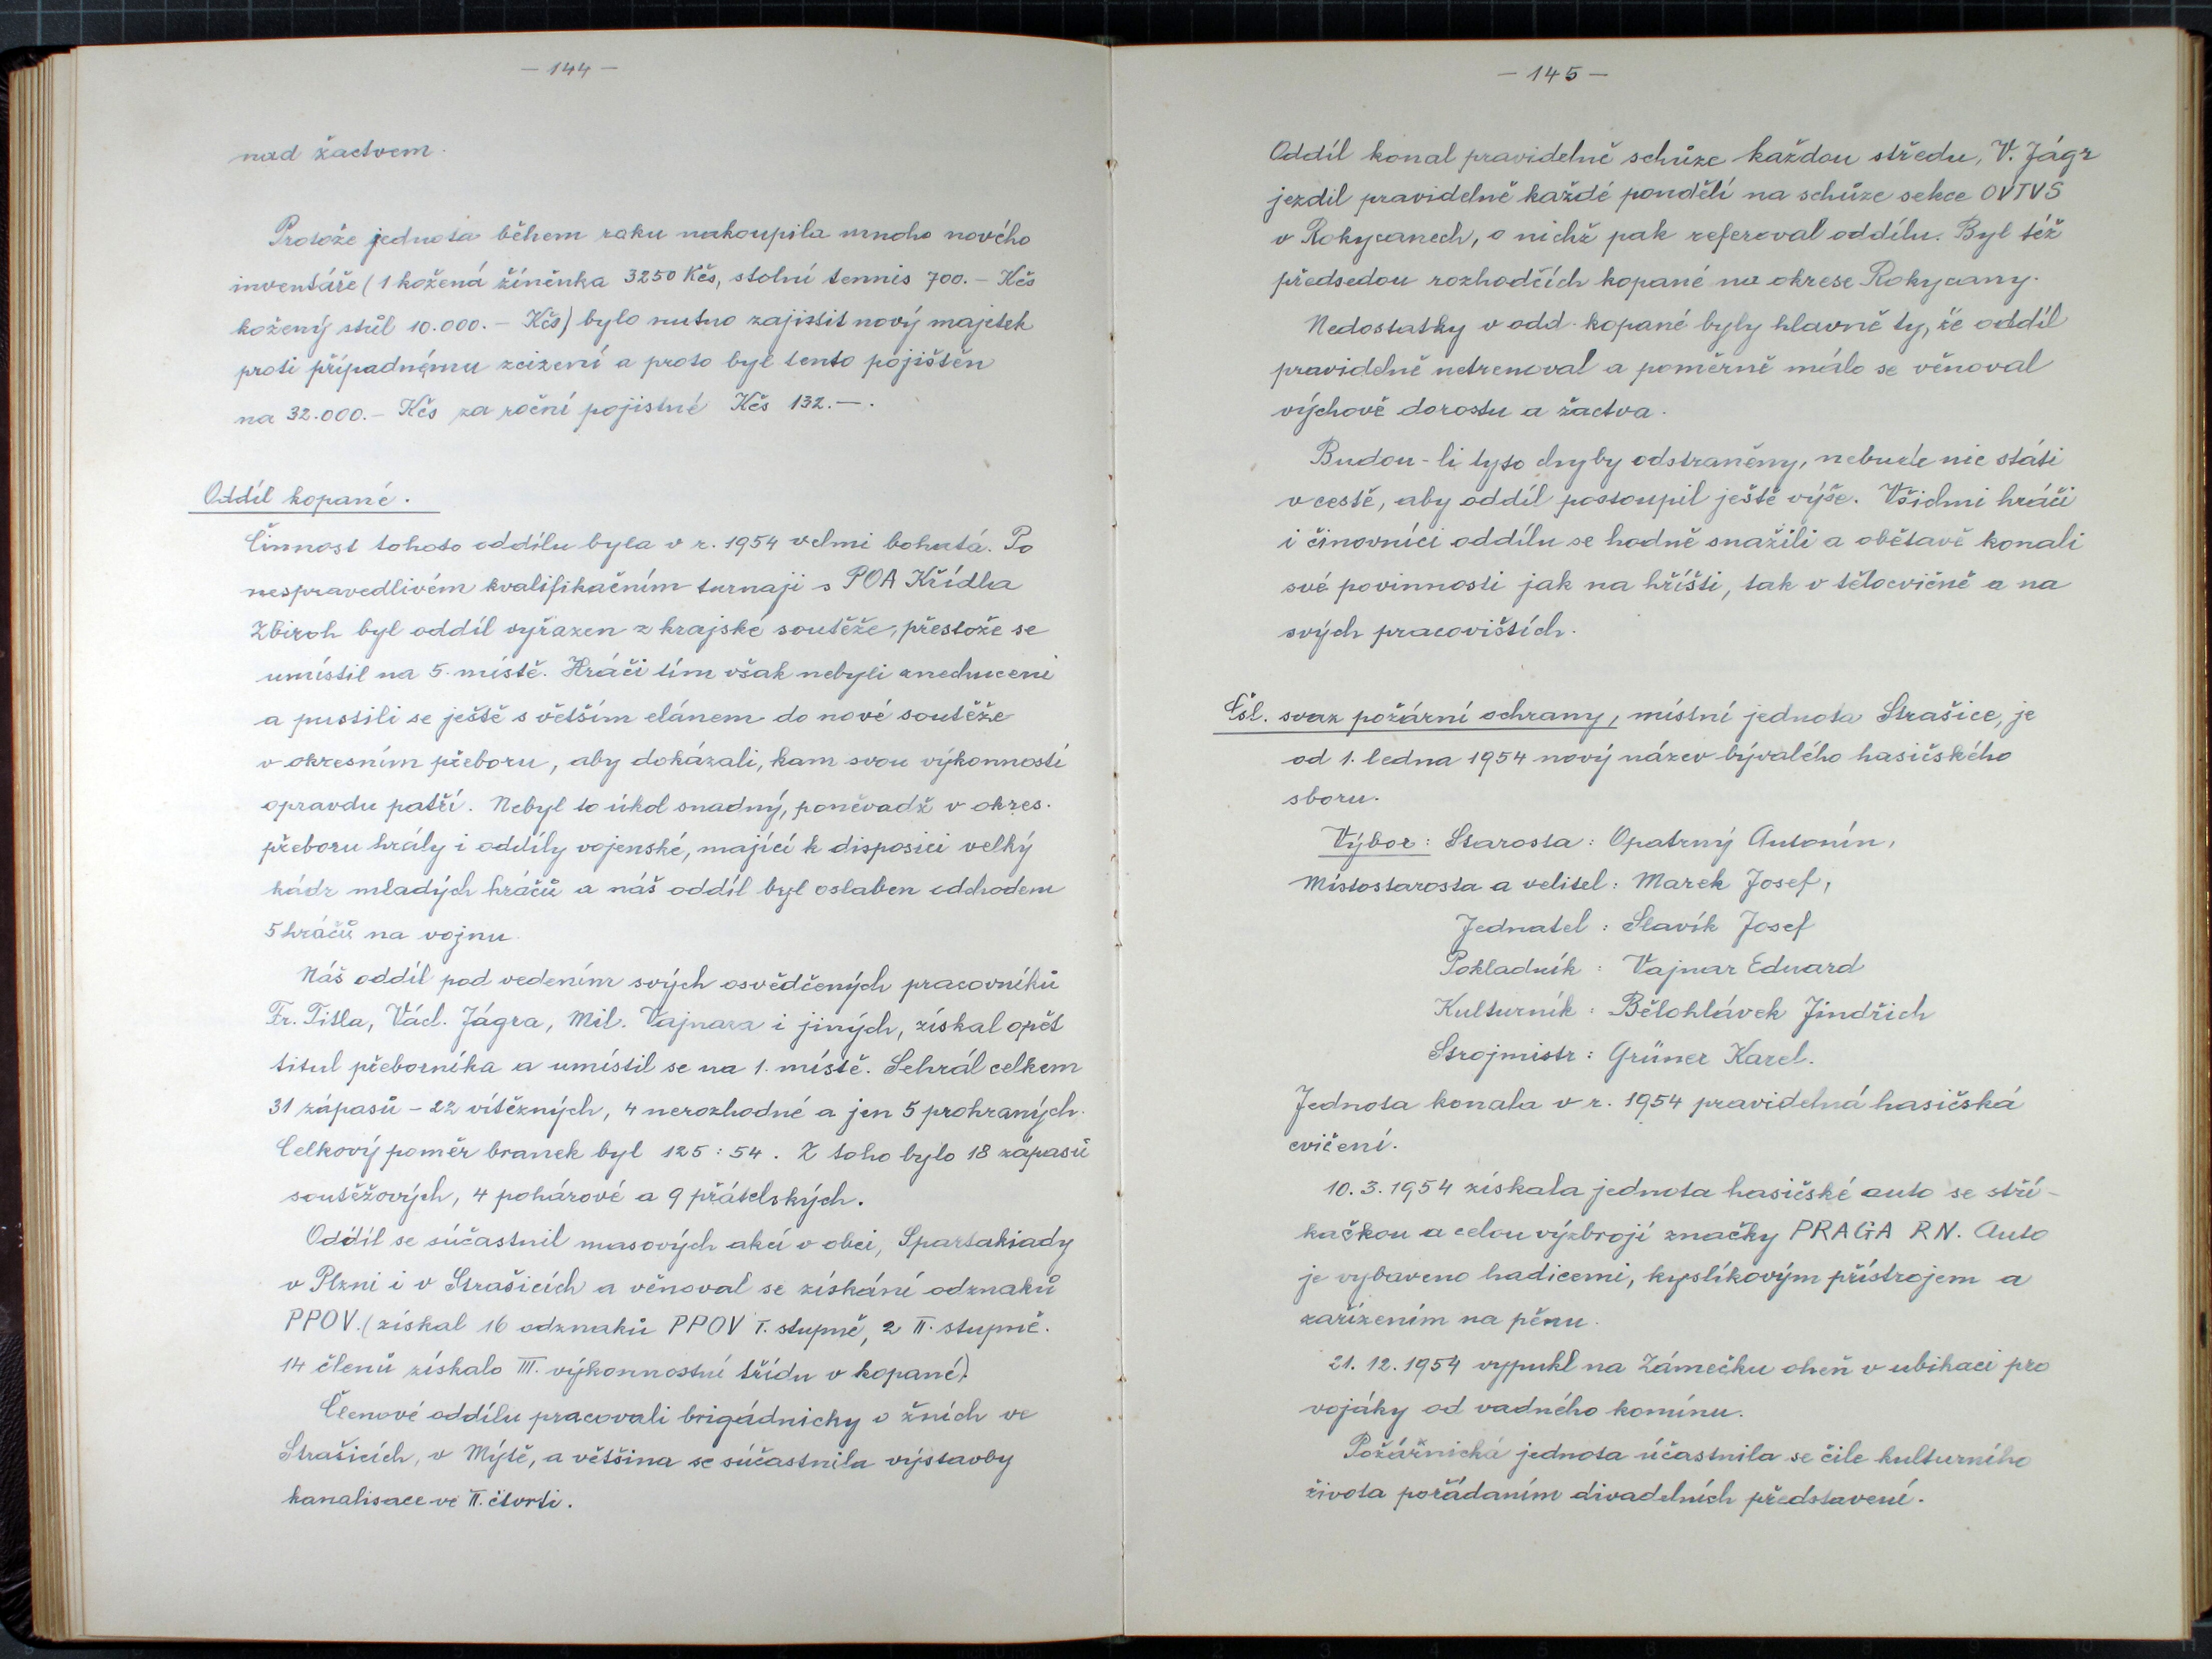 — 144 —
nad žactvem.
Protože jednota během roku nakoupila mnoho nového
inventáře (1 kožená žíněnka 3250 Kčs, stolní tennis 700.- Kčs
kožený stůl 10.000.- Kčs) bylo nutno zajistit nový majetek
proti případnému zcizení a proto byl tento pojištěn
na 32.000.- Kčs za roční pojistné Kčs 132.—.
Oddíl kopané.
Činnost tohoto oddílu byla v r. 1954 velmi bohatá. Po
nespravedlivém kvalifikačním turnaji s POA Křídla
Zbiroh byl oddíl vyřazen z krajské soutěže, přestože se
umístil na 5. místě. Hráči tím však nebyli znechuceni
a pustili se ještě s větším elánem do nové soutěže
v okresním přeboru, aby dokázali, kam svou výkonností
opravdu patří. Nebyl to úkol snadný, poněvadž v okres.
přeboru hrály i oddíly vojenské, mající k disposici velký
kádr mladých hráčů a náš oddíl byl oslaben odchodem
5 hráčů na vojnu.
Náš oddíl pod vedením svých osvědčených pracovníků
Fr. Titla, Václ. Jágra, Mil. Vajnara i jiných, získal opět
titul přeborníka a umístil se na 1. místě. Sehrál celkem
31 zápasů - 22 vítězných, 4 nerozhodné a jen 5 prohraných.
Celkový poměr branek byl 125 : 54. Z toho bylo 18 zápasů
soutěžových, 4 pohárové a 9 přátelských.
Oddíl se súčastnil masových akcí v obci, Spartakiady
v Plzni i v Strašicích a věnoval se získání odznaků
PPOV. (získal 16 odznaků PPOV I. stupně, 2 II. stupně.
14 členů získalo III. výkonnostní třídu v kopané).
Členové oddílu pracovali brigádnicky o žních ve
Strašicích, v Mýtě, a většina se súčastnila výstavby
kanalisace ve II. čtvrti.
— 145 —
Oddíl konal pravidelně schůze každou středu, V. Jágr
jezdil pravidelně každé pondělí na schůze sekce OVTVS
v Rokycanech, o nichž pak referoval oddílu. Byl též
předsedou rozhodčích kopané na okrese Rokycany.
Nedostatky v odd. kopané byly hlavně ty, že oddíl
pravidelně netrenoval a poměrně málo se věnoval
výchově dorostu a žactva.
Budou-li tyto chyby odstraněny, nebude nic státi
v cestě, aby oddíl postoupil ještě výše. Všichni hráči
i činovníci oddílu se hodně snažili a obětavě konali
své povinnosti jak na hřišti, tak v tělocvičně a na
svých pracovištích.
Čsl. svaz požární ochrany, místní jednota Strašice, je
od 1. ledna 1954 nový název bývalého hasičského
sboru.
Výbor: Starosta: Opatrný Antonín,
Místostarosta a velitel: Marek Josef,
Jednatel: Slavík Josef
Pokladník: Vajnar Eduard
Kulturník: Bělohlávek Jindřich
Strojmistr: Grüner Karel.
Jednota konala v r. 1954 pravidelná hasičská
cvičení.
10. 3. 1954 získala jednota hasičské auto se stří-
kačkou a celou výzbrojí značky PRAGA RN. Auto
je vybaveno hadicemi, kyslíkovým přístrojem a
zařízením na pěnu.
21. 12. 1954 vypukl na Zámečku oheň v ubikaci pro
vojáky od vadného komínu.
Požárnická jednota účastnila se čile kulturního
života pořádáním divadelních představení.